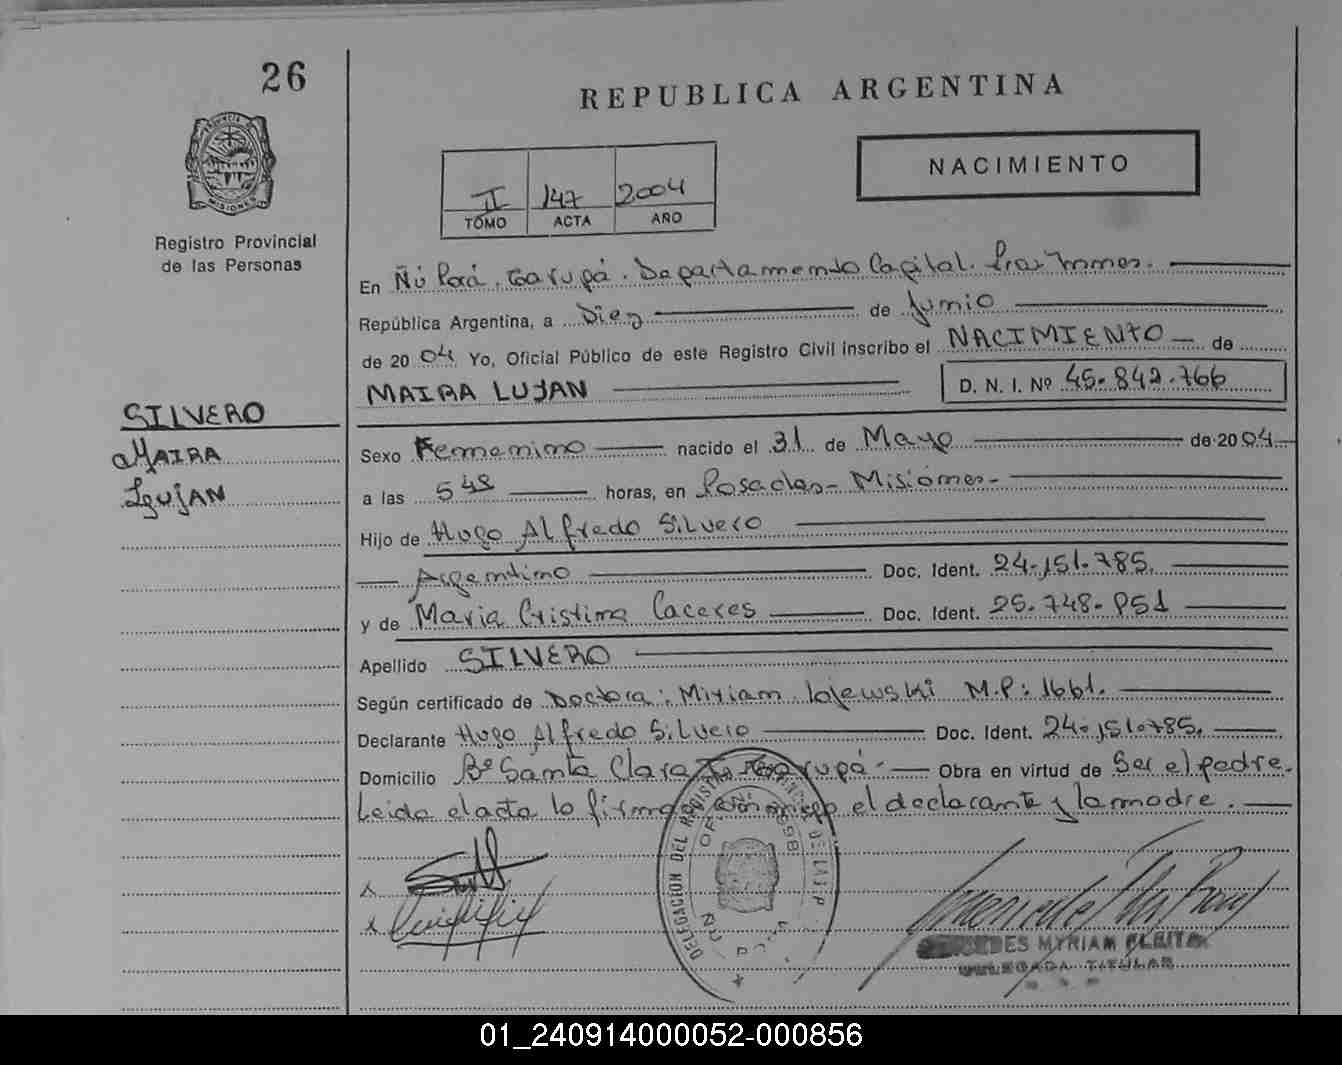 26
REPUBLICA ARGENTINA
PROVINCIA DE
MISIONES
NACIMIENTO
II 147 2004
TOMO ACTA AÑO
Registro Provincial
de las Personas
En Ñú Porá, Garupá. Departamento Capital. Pcia. Mnes.
República Argentina, a Diez de Junio
de 2004 Yo, Oficial Público de este Registro Civil inscribo el NACIMIENTO de
MAIRA LUJAN D. N. I. Nº 45.842.766
SILVERO
MAIRA
LUJAN
Sexo Femenino nacido el 31 de Mayo de 2004
a las 5 48 horas, en Posadas - Misiones -
Hijo de Hugo Alfredo Silvero
Argentino Doc. Ident. 24.151.785.
y de Maria Cristina Caceres Doc. Ident. 25.748.951
Apellido SILVERO
Según certificado de Doctora: Miriam M.P: 1661.
Declarante Hugo Alfredo Silvero Doc. Ident. 24.151.785.
Domicilio Bº Santa Clara Garupá Obra en virtud de Ser el padre.
Leida el acta lo firman el declarante y la madre.
x
x
DELEGACION DEL REGISTRO DE LAS P
MYRIAM FLEITA
DELEGADA TITULAR
01_240914000052-000856